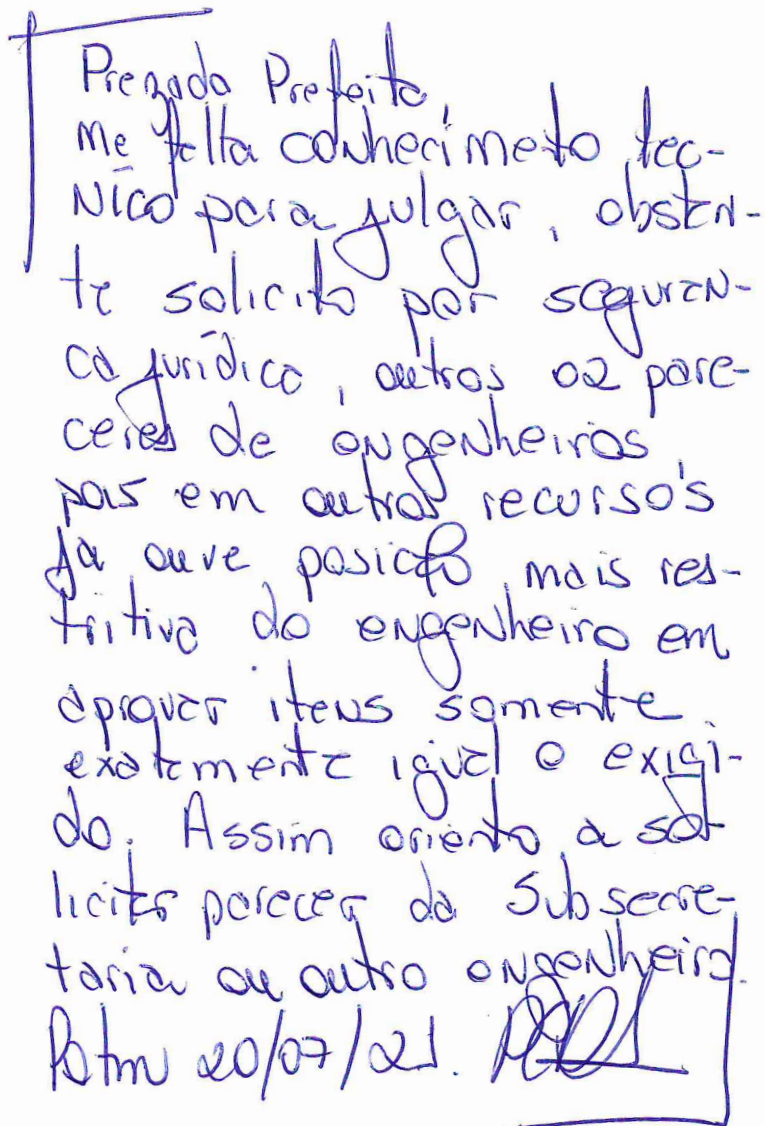 Prezado Prefeito,
me falta conhecimeto tec-
nico para julgar, obstan-
te solicito por seguran-
ca jurídica, outros 02 pare-
ceres de engenheiros
pois em outros recursos
ja ouve posição mais res-
tritiva do engenheiro em
aprovar itens somente
exatamente igual o exigi-
do. Assim oriento a sol
licitar parecer da Subsecre-
taria ou outro engenheiro.
20/07/21.